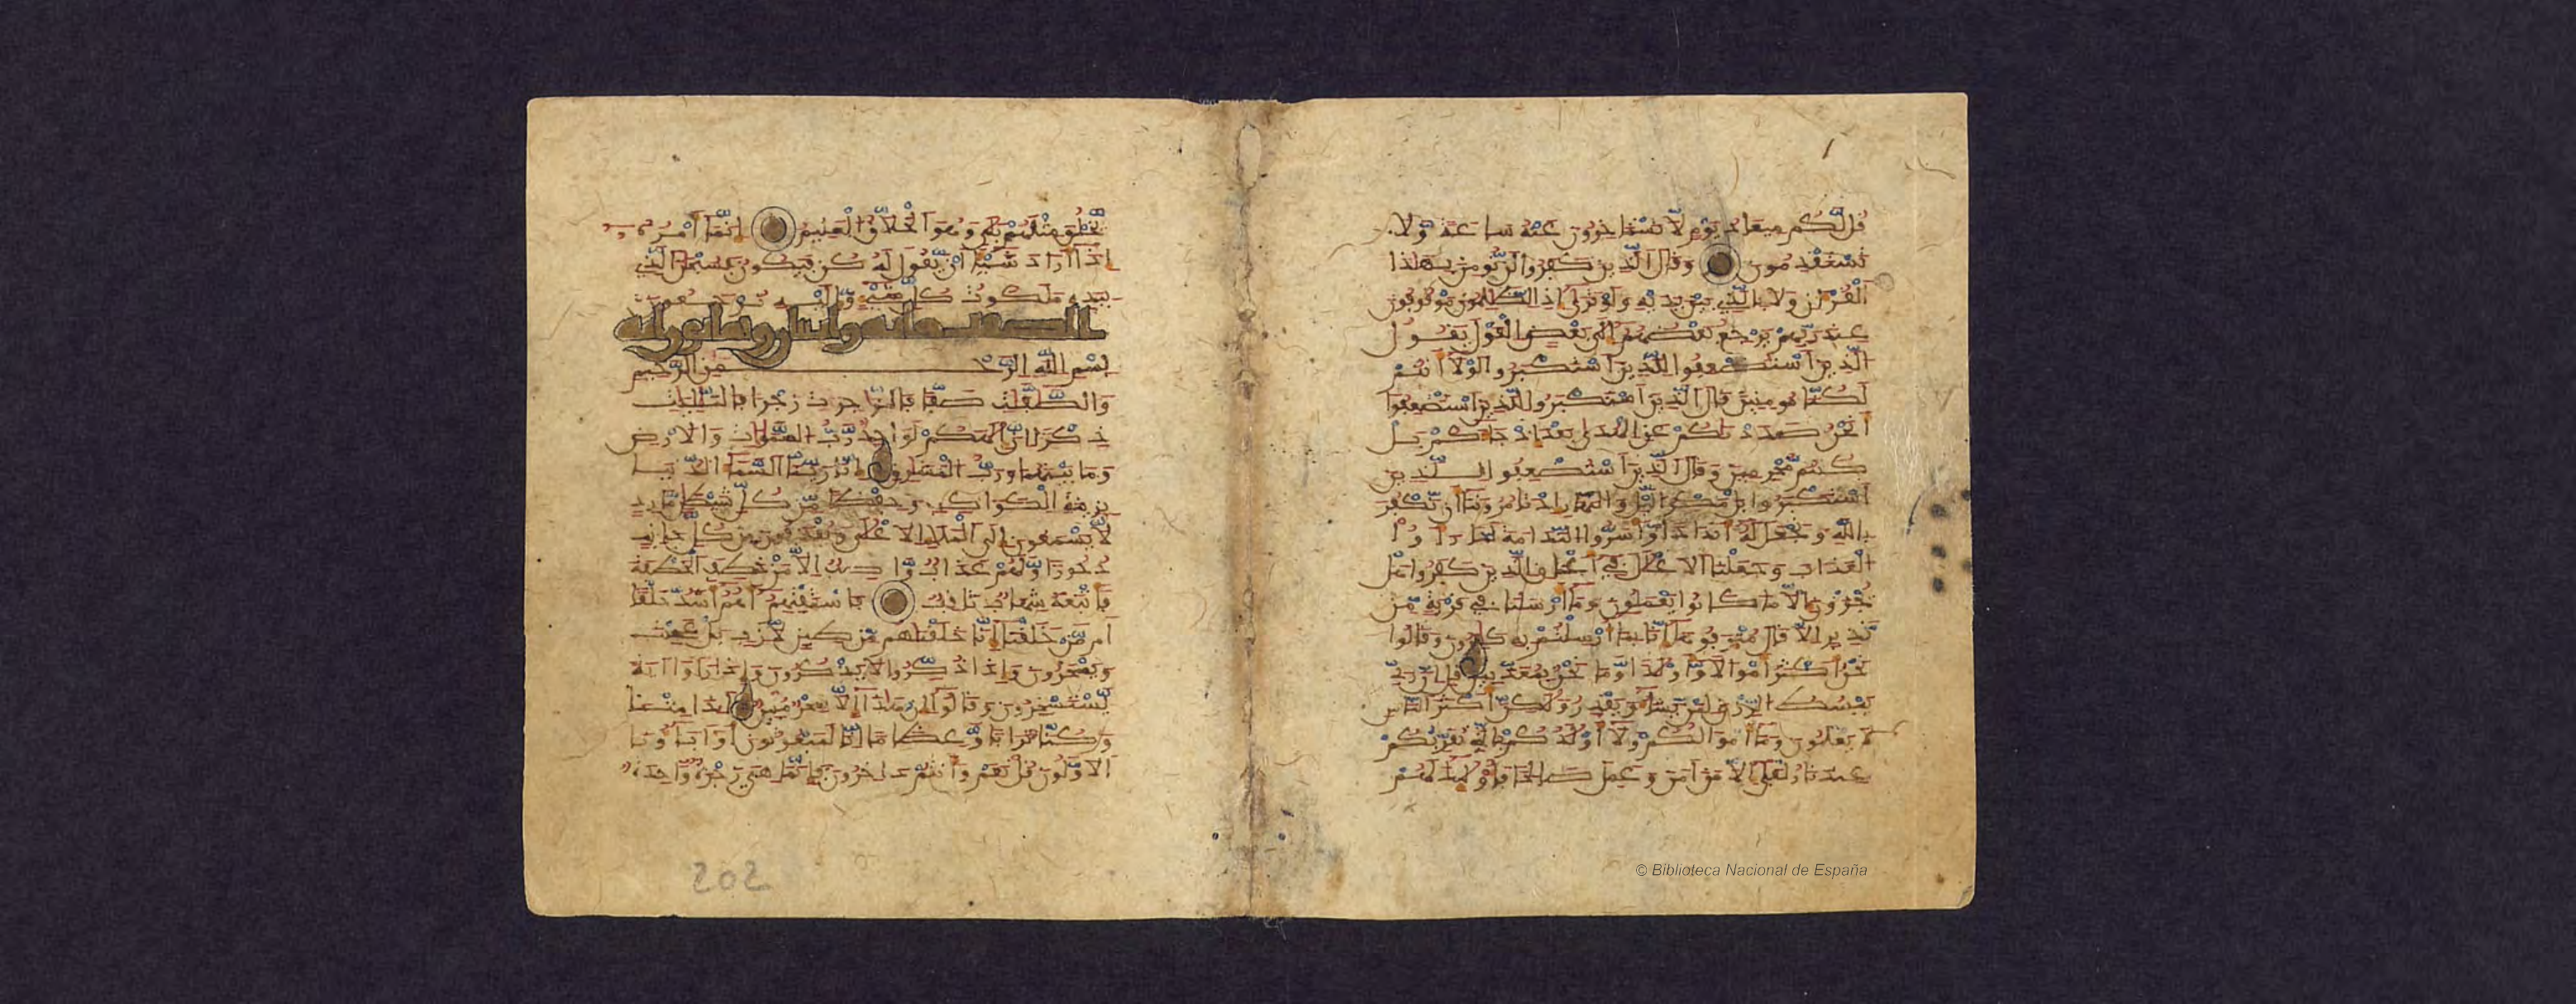 قُل لَّكُم مِّيعَادُ يَوْمٍ لَّا تَسْتَٰخِرُونَ عَنْهُ سَاعَةً وَّلَا
تَسْتَقْدِمُونَ وَقَالَ الَّذِينَ كَفَرُوا لَن نُّومِنَ بِهَٰذَا
اَلْقُرْءَانِ وَلَا بِالَّذِي بَيْنَ يَدَيْهِ وَلَوْ تَرَىٰ إِذِ الظَّٰلِمُونَ مَوْقُوفُونَ
عِندَ رَبِّهِمْ يَرْجِعُ بَعْضُهُمُ إِلَىٰ بَعْضٍ الْقَوْلَ يَقُولُ
الَّذِينَ اَسْتُضْعِفُوا لِلَّذِينَ اَسْتَكْبَرُوا لَوْلَا أَنتُمْ
لَكُنَّا مُومِنِينَ قَالَ الَّذِينَ اَسْتَكْبَرُوا لِلَّذِينَ اَسْتُضْعِفُوا
أَنَحْنُ صَدَدْنَٰكُمْ عَنِ الْهُدَىٰ بَعْدَ إِذْ جَاءَكُمْ بَلْ
كُنتُم مُّجْرِمِينَ وَقَالَ الَّذِينَ اَسْتُضْعِفُوا لِلَّذِينَ
اَسْتَكْبَرُوا بَلْ مَكْرُ الَّيْلِ وَالنَّهَارِ إِذْ تَامُرُونَنَا أَن نَّكْفُرَ
بِاللَّهِ وَنَجْعَلَ لَهُ أَندَادًا وَّأَسَرُّوا النَّدَامَةَ لَمَّا رَأَوُا
الْعَذَابَ وَجَعَلْنَا الْأَغْلَٰلَ فِي أَعْنَاقِ الَّذِينَ كَفَرُوا هَلْ
يُجْزَوْنَ إِلَّا مَا كَانُوا يَعْمَلُونَ وَمَا أَرْسَلْنَا فِي قَرْيَةٍ مِّن
نَّذِيرٍ إِلَّا قَالَ مُتْرَفُوهَا إِنَّا بِمَا أُرْسِلْتُم بِهِ كَٰفِرُونَ وَقَالُوا
نَحْنُ أَكْثَرُ أَمْوَٰلًا وَّأَوْلَٰدًا وَّمَا نَحْنُ بِمُعَذَّبِينَ قُلْ إِنَّ رَبِّي
يَبْسُطُ الرِّزْقَ لِمَن يَّشَاءُ وَيَقْدِرُ وَلَٰكِنَّ أَكْثَرَ النَّاسِ
لَا يَعْلَمُونَ وَمَا أَمْوَٰلُكُمْ وَلَا أَوْلَٰدُكُم بِالَّتِي تُقَرِّبُكُمْ
عِندَنَا زُلْفَىٰ إِلَّا مَنْ ءَامَنَ وَعَمِلَ صَٰلِحًا فَأُولَٰئِكَ لَهُمْ
يَّخْلُقَ مِثْلَهُم بَلَىٰ وَهُوَ اَلْخَلَّٰقُ الْعَلِيمُ إِنَّمَا أَمْرُهُ
إِذَا أَرَادَ شَيْئًا أَن يَّقُولَ لَهُ كُن فَيَكُونُ فَسُبْحَٰنَ الَّذِي
بِيَدِهِ مَلَكُوتُ كُلِّ شَيْءٍ وَإِلَيْهِ تُرْجَعُونَ
الصفت مائه واثنان وثمانون ايه
بِسْمِ اللَّهِ الرَّحْمَٰنِ الرَّحِيمِ
وَالصَّٰٓفَّٰتِ صَفًّا فَالزَّٰجِرَٰتِ زَجْرًا فَالتَّٰلِيَٰتِ
ذِكْرًا إِنَّ إِلَٰهَكُمْ لَوَاحِدٌ رَّبُّ السَّمَٰوَٰتِ وَالْأَرْضِ
وَمَا بَيْنَهُمَا وَرَبُّ الْمَشَٰرِقِ إِنَّا زَيَّنَّا السَّمَاءَ الدُّنْيَا
بِزِينَةِ الْكَوَاكِبِ وَحِفْظًا مِّن كُلِّ شَيْطَٰنٍ مَّارِدٍ
لَّا يَسْمَعُونَ إِلَى الْمَلَإِ الْأَعْلَىٰ وَيُقْذَفُونَ مِن كُلِّ جَانِبٍ
دُحُورًا وَّلَهُمْ عَذَابٌ وَّاصِبٌ إِلَّا مَنْ خَطِفَ الْخَطْفَةَ
فَأَتْبَعَهُ شِهَابٌ ثَاقِبٌ فَاسْتَفْتِهِمُ أَهُمُ أَشَدُّ خَلْقًا
أَم مَّنْ خَلَقْنَا إِنَّا خَلَقْنَٰهُم مِّن طِينٍ لَّازِبٍ بَلْ عَجِبْتَ
وَيَسْخَرُونَ وَإِذَا ذُكِّرُوا لَا يَذْكُرُونَ وَإِذَا رَأَوْا ءَايَةً
يَّسْتَسْخِرُونَ وَقَالُوا إِنْ هَٰذَا إِلَّا سِحْرٌ مُّبِينٌ أَٰ۟ذَا مِتْنَا
وَكُنَّا تُرَابًا وَّعِظَٰمًا إِنَّا لَمَبْعُوثُونَ أَوَءَابَاؤُنَا
الْأَوَّلُونَ قُلْ نَعَمْ وَأَنتُمْ دَٰخِرُونَ فَإِنَّمَا هِيَ زَجْرَةٌ وَّٰحِدَةٌ
202
© Biblioteca Nacional de España